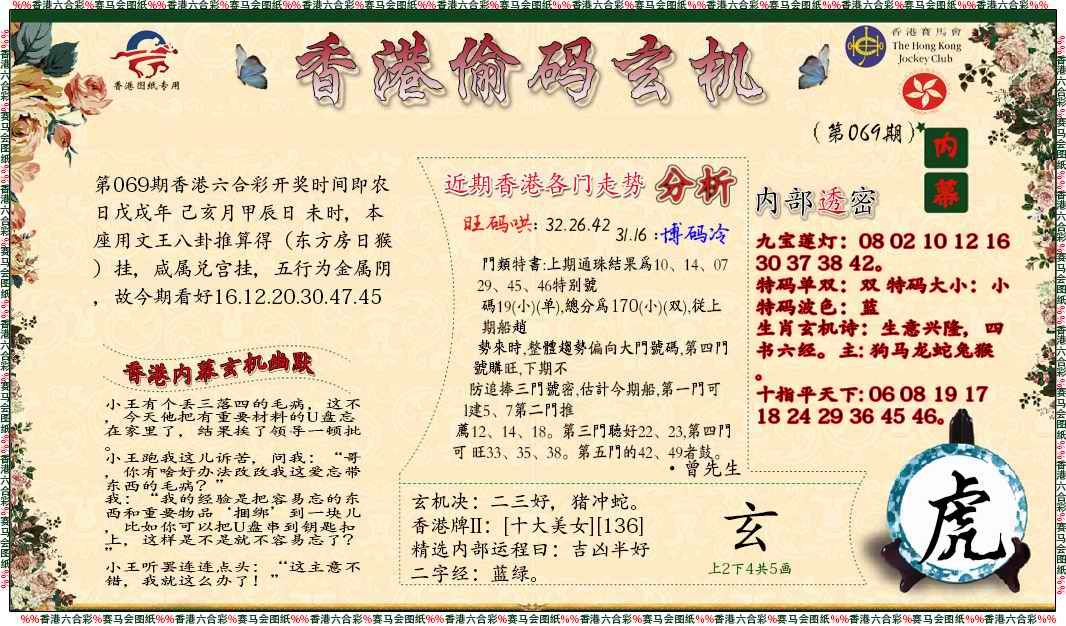 %%香港六合彩%赛马会图纸%%香港六合彩%赛马会图纸%%香港六合彩%赛马会图纸%%香港六合彩%赛马会图纸%%香港六合彩%赛马会图纸%%香港六合彩%赛马会图纸%%香港六合彩%%
香港图纸专用
香港偷码玄机
香港賽馬會
The Hong Kong
Jockey Club
(第069期)
内
幕
第069期香港六合彩开奖时间即农
日戊戌年 己亥月甲辰日 未时，本
座用文王八卦推算得（东方房日猴
）挂，咸属兑宫挂，五行为金属阴
，故今期看好16.12.20.30.47.45
香港内幕玄机幽默
小王有个丢三落四的毛病，这不
，今天他把有重要材料的U盘忘
在家里了，结果挨了领导一顿批
。
小王跑我这儿诉苦，问我：“哥
，你有啥好办法改改我这爱忘带
东西的毛病？”
我：“我的经验是把容易忘的东
西和重要物品‘捆绑’到一块儿
，比如你可以把U盘串到钥匙扣
上，这样是不是就不容易忘了？
”
小王听罢连连点头：“这主意不
错，我就这么办了！”
近期香港各门走势 分析
旺码哄: 32.26.42
31.16 :博码冷
門類特書:上期通珠結果爲10、14、07
29、45、46特別號
碼19(小)(单),總分爲170(小)(双),從上
期船趙
勢來時,整體趨勢偏向大門號碼,第四門
號購旺,下期不
防追捧三門號密,估計今期船,第一門可
l建5、7第二門推
薦12、14、18。第三門聽好22、23,第四門
可 旺33、35、38。第五門的42、49者鼓。
・曾先生
内部透密
九宝莲灯：08 02 10 12 16
30 37 38 42。
特码单双：双 特码大小：小
特码波色：蓝
生肖玄机诗：生意兴隆，四
书六经。主: 狗马龙蛇兔猴
。
十指平天下: 06 08 19 17
18 24 29 36 45 46。
玄机决：二三好，猪冲蛇。
香港牌II：[十大美女][136]
精选内部运程日：吉凶半好
二字经：蓝绿。
玄
上2下4共5画
虎
%%香港六合彩%赛马会图纸%%香港六合彩%赛马会图纸%%香港六合彩%赛马会图纸%%香港六合彩%赛马会图纸%%香港六合彩%赛马会图纸%%香港六合彩%赛马会图纸%%香港六合彩%%